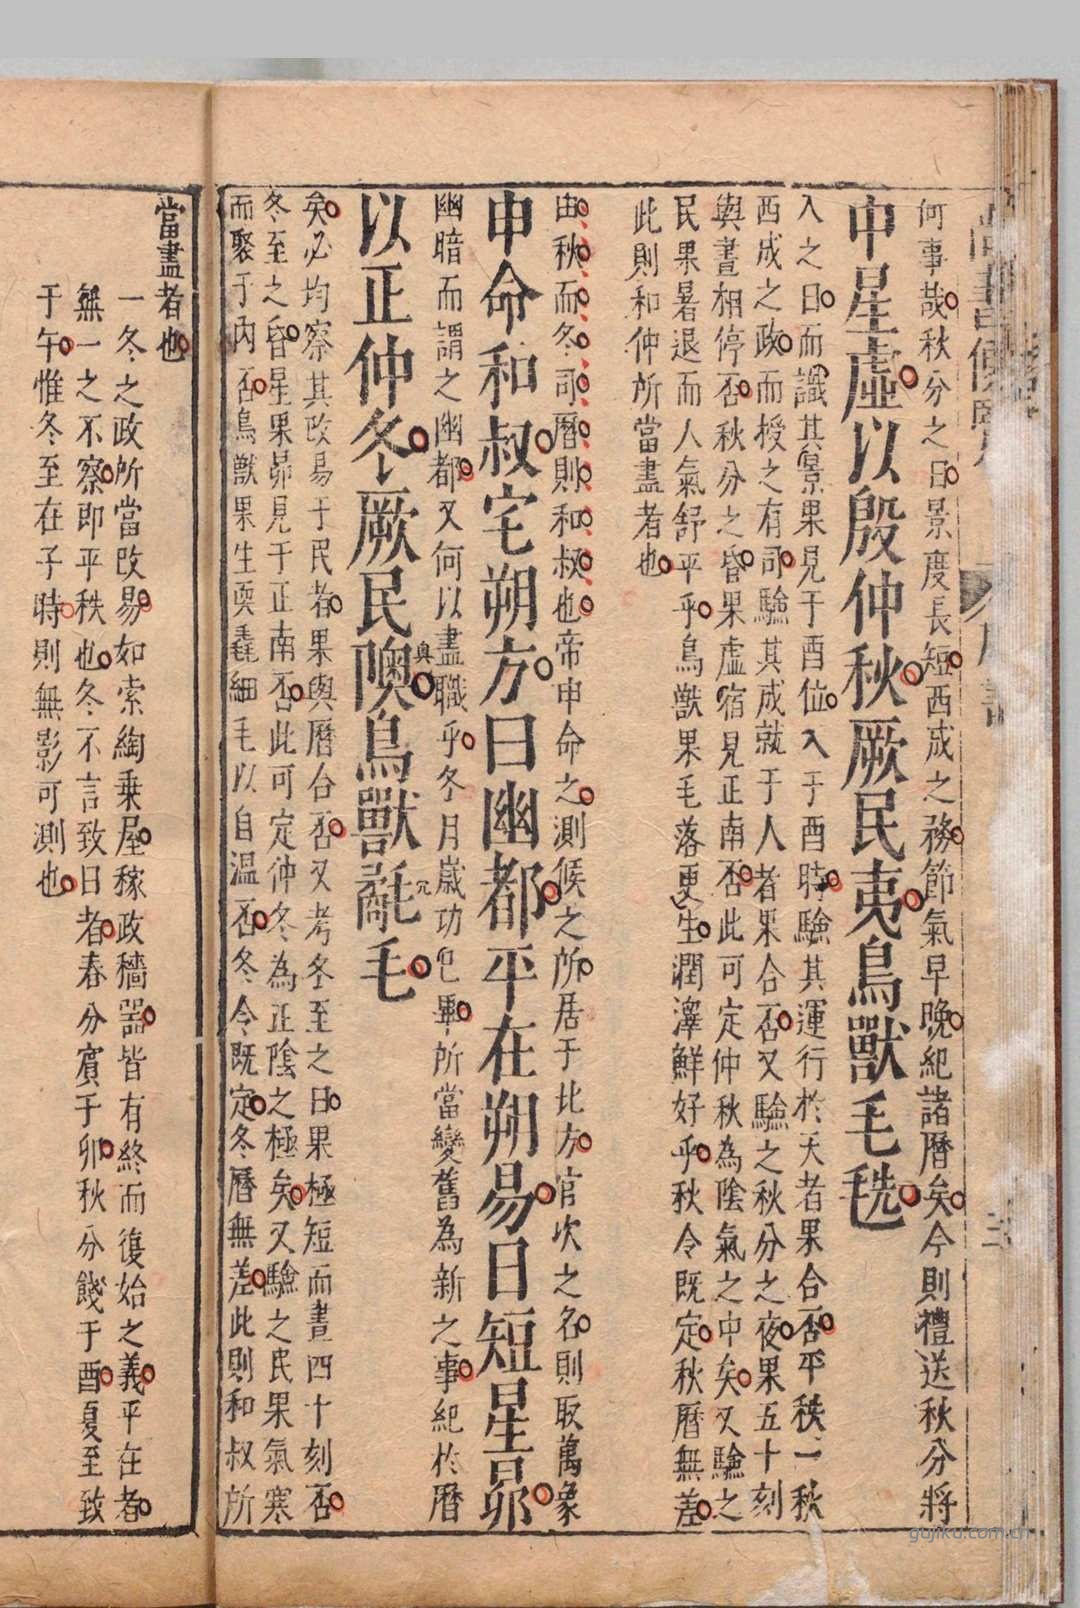 何事哉秋分之日景度長短西成之務節氣早晚紀諸曆矣今則禮送秋分將
中星虛以殷仲秋厥民夷鳥獸毛毨
入之日而識其景果見于酉位入于酉時驗其運行於天者果合否平秩一秋
西成之政而授之有司驗其成就于人者果合否又驗之秋分之夜果五十刻
與晝相停否秋分之昏果虛宿見正南否此可定仲秋為陰氣之中矣又驗之
民果暑退而人氣舒平乎鳥獸果毛落更生潤澤鮮好乎秋令既定秋曆無差
此則和仲所當盡者也
由秋而冬司曆則和叔也帝申命之測候之所居于北方官次之名則取萬象
申命和叔宅朔方曰幽都平在朔易日短星昴
幽暗而謂之幽都又何以盡職乎冬月歲功已畢所當變舊為新之事紀於曆
以正仲冬厥民隩鳥獸氄毛
奧
冗
矣必均察其改易于民者果與曆合否又考冬至之日果極短而晝四十刻否
冬至之昏星果昴見于正南否此可定仲冬為正陰之極矣又驗之民果氣寒
而聚于內否鳥獸果生耎毳細毛以自溫否冬令既定冬曆無差此則和叔所
當盡者也
一冬之政所當改易如索綯乗屋稼政穡器皆有終而復始之義平在者
無一之不察即平秩也冬不言致日者春分賓于卯秋分餞于酉夏至致
于午惟冬至在子時則無影可測也
gujiku.com.cn